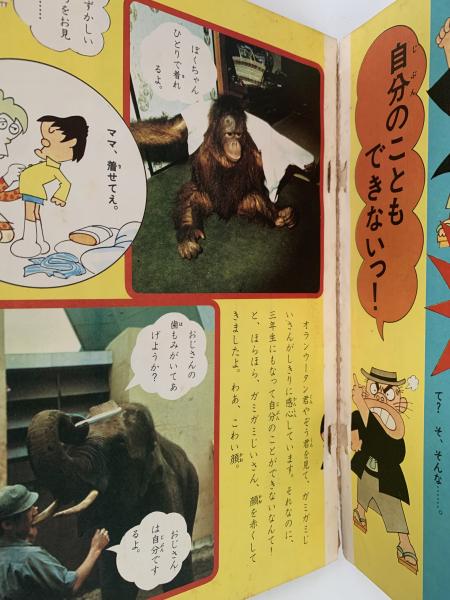 自分のことも
できないっ！
て？　そ、そんな……。
ぼくちゃん、
ひとりで着れ
るよ。
ずかしい
をお見
……
ママ、着せてえ。
オランウータン君やぞう君を見て、ガミガミじ
いさんがしきりに感心しています。それなのに、
三年生にもなって自分のことができないなんて！
と、ほらほら、ガミガミじいさん、顔を赤くして
きましたよ。わあ、こわい顔。
おじさんの
歯もみがいてあ
げようか？
おじさん
は自分です
るよ。